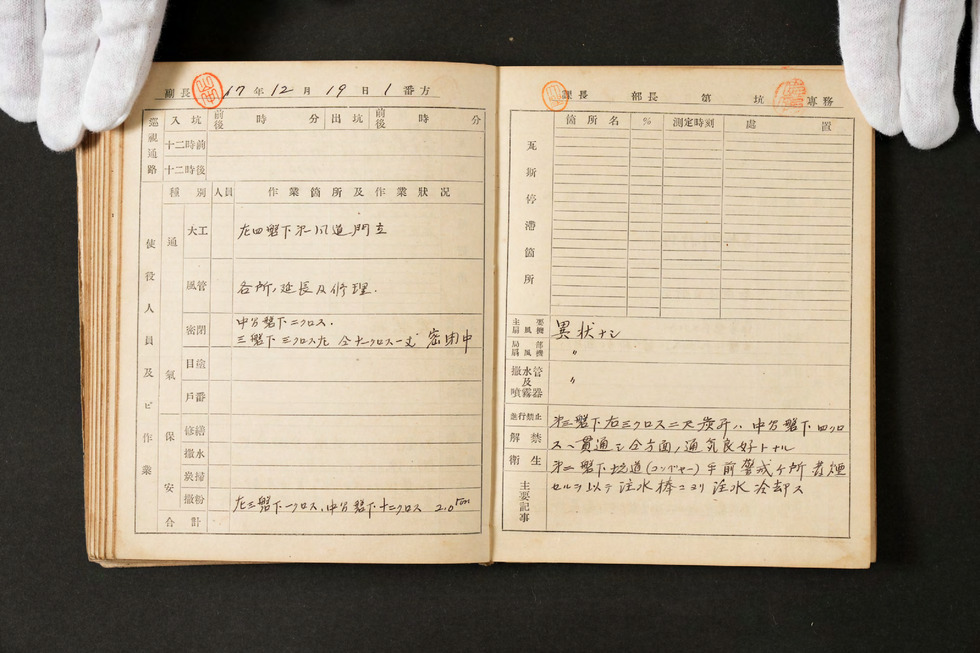 副長 17年12月19日1番方
巡視通路 入坑 前後 時 分 出坑 前後 時 分
十二時前
十二時後
種別 人員 作業箇所及作業狀況
使役人員及ビ作業
通氣
大工 左四盤下第一風道門立
風管 各所ノ延長及修理.
密閉 中分盤下二クロス.
三盤下三クロス左 密閉中
目塗
戸番
保安
修繕
撒水
炭掃
撒粉 左三盤下一クロス、中分盤下十二クロス 2.0
合計
課長 部長 第 坑 専務
瓦斯停滯箇所
箇所名 % 測定時刻 處置
主要扇風機 異狀ナシ
局部扇風機 〃
撒水管及噴霧器 〃
進行禁止 第三盤下右三クロス二尺炭昇ハ中分盤下四クロ
解禁 スヘ貫通シ全方面ノ通気良好トナル
衛生 第二盤下坑道(コンベヤー)手前警戒ヶ所 発煙
主要記事 セルヲ以テ注水棒ニヨリ注水冷却ス